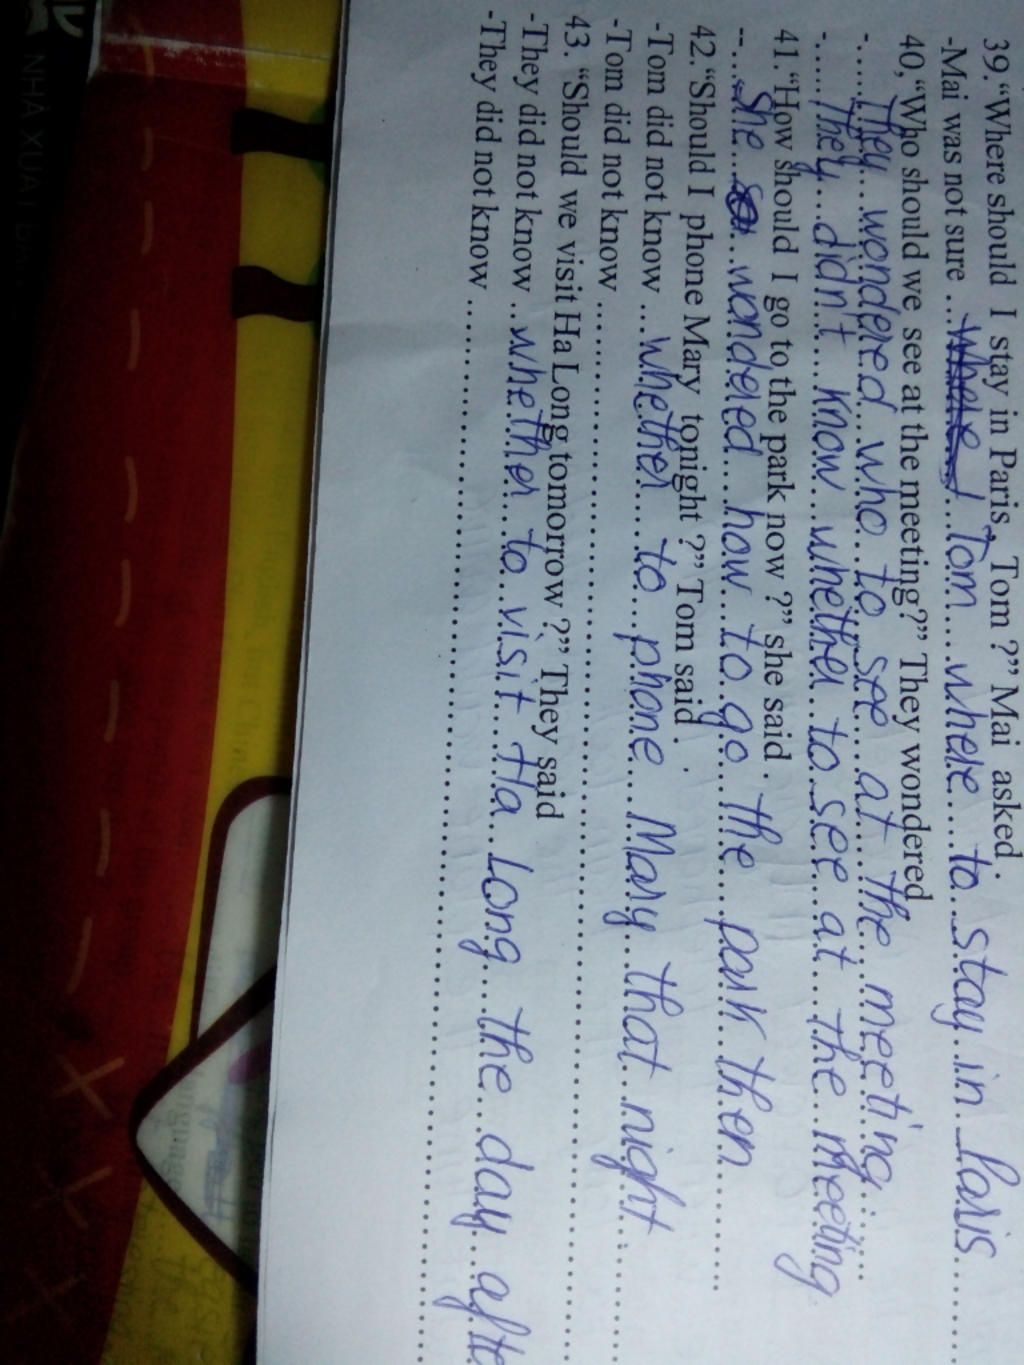 39."Where should I stay in Paris, Tom ?" Mai asked.
-Mai was not sure ... Tom where to stay in Paris
40,"Who should we see at the meeting?" They wondered
-...They wondered who to see at the meeting
-...They didn't know whether to see at the meeting
41."How should I go to the park now ?" she said.
--...She wondered how to go the park then
42."Should I phone Mary tonight ?" Tom said.
-Tom did not know ...whether to phone Mary that night
-Tom did not know ...
43. "Should we visit Ha Long tomorrow ?" They said
-They did not know ...whether to visit Ha Long the day afte
-They did not know ...
NHÀ XUẤT BẢN